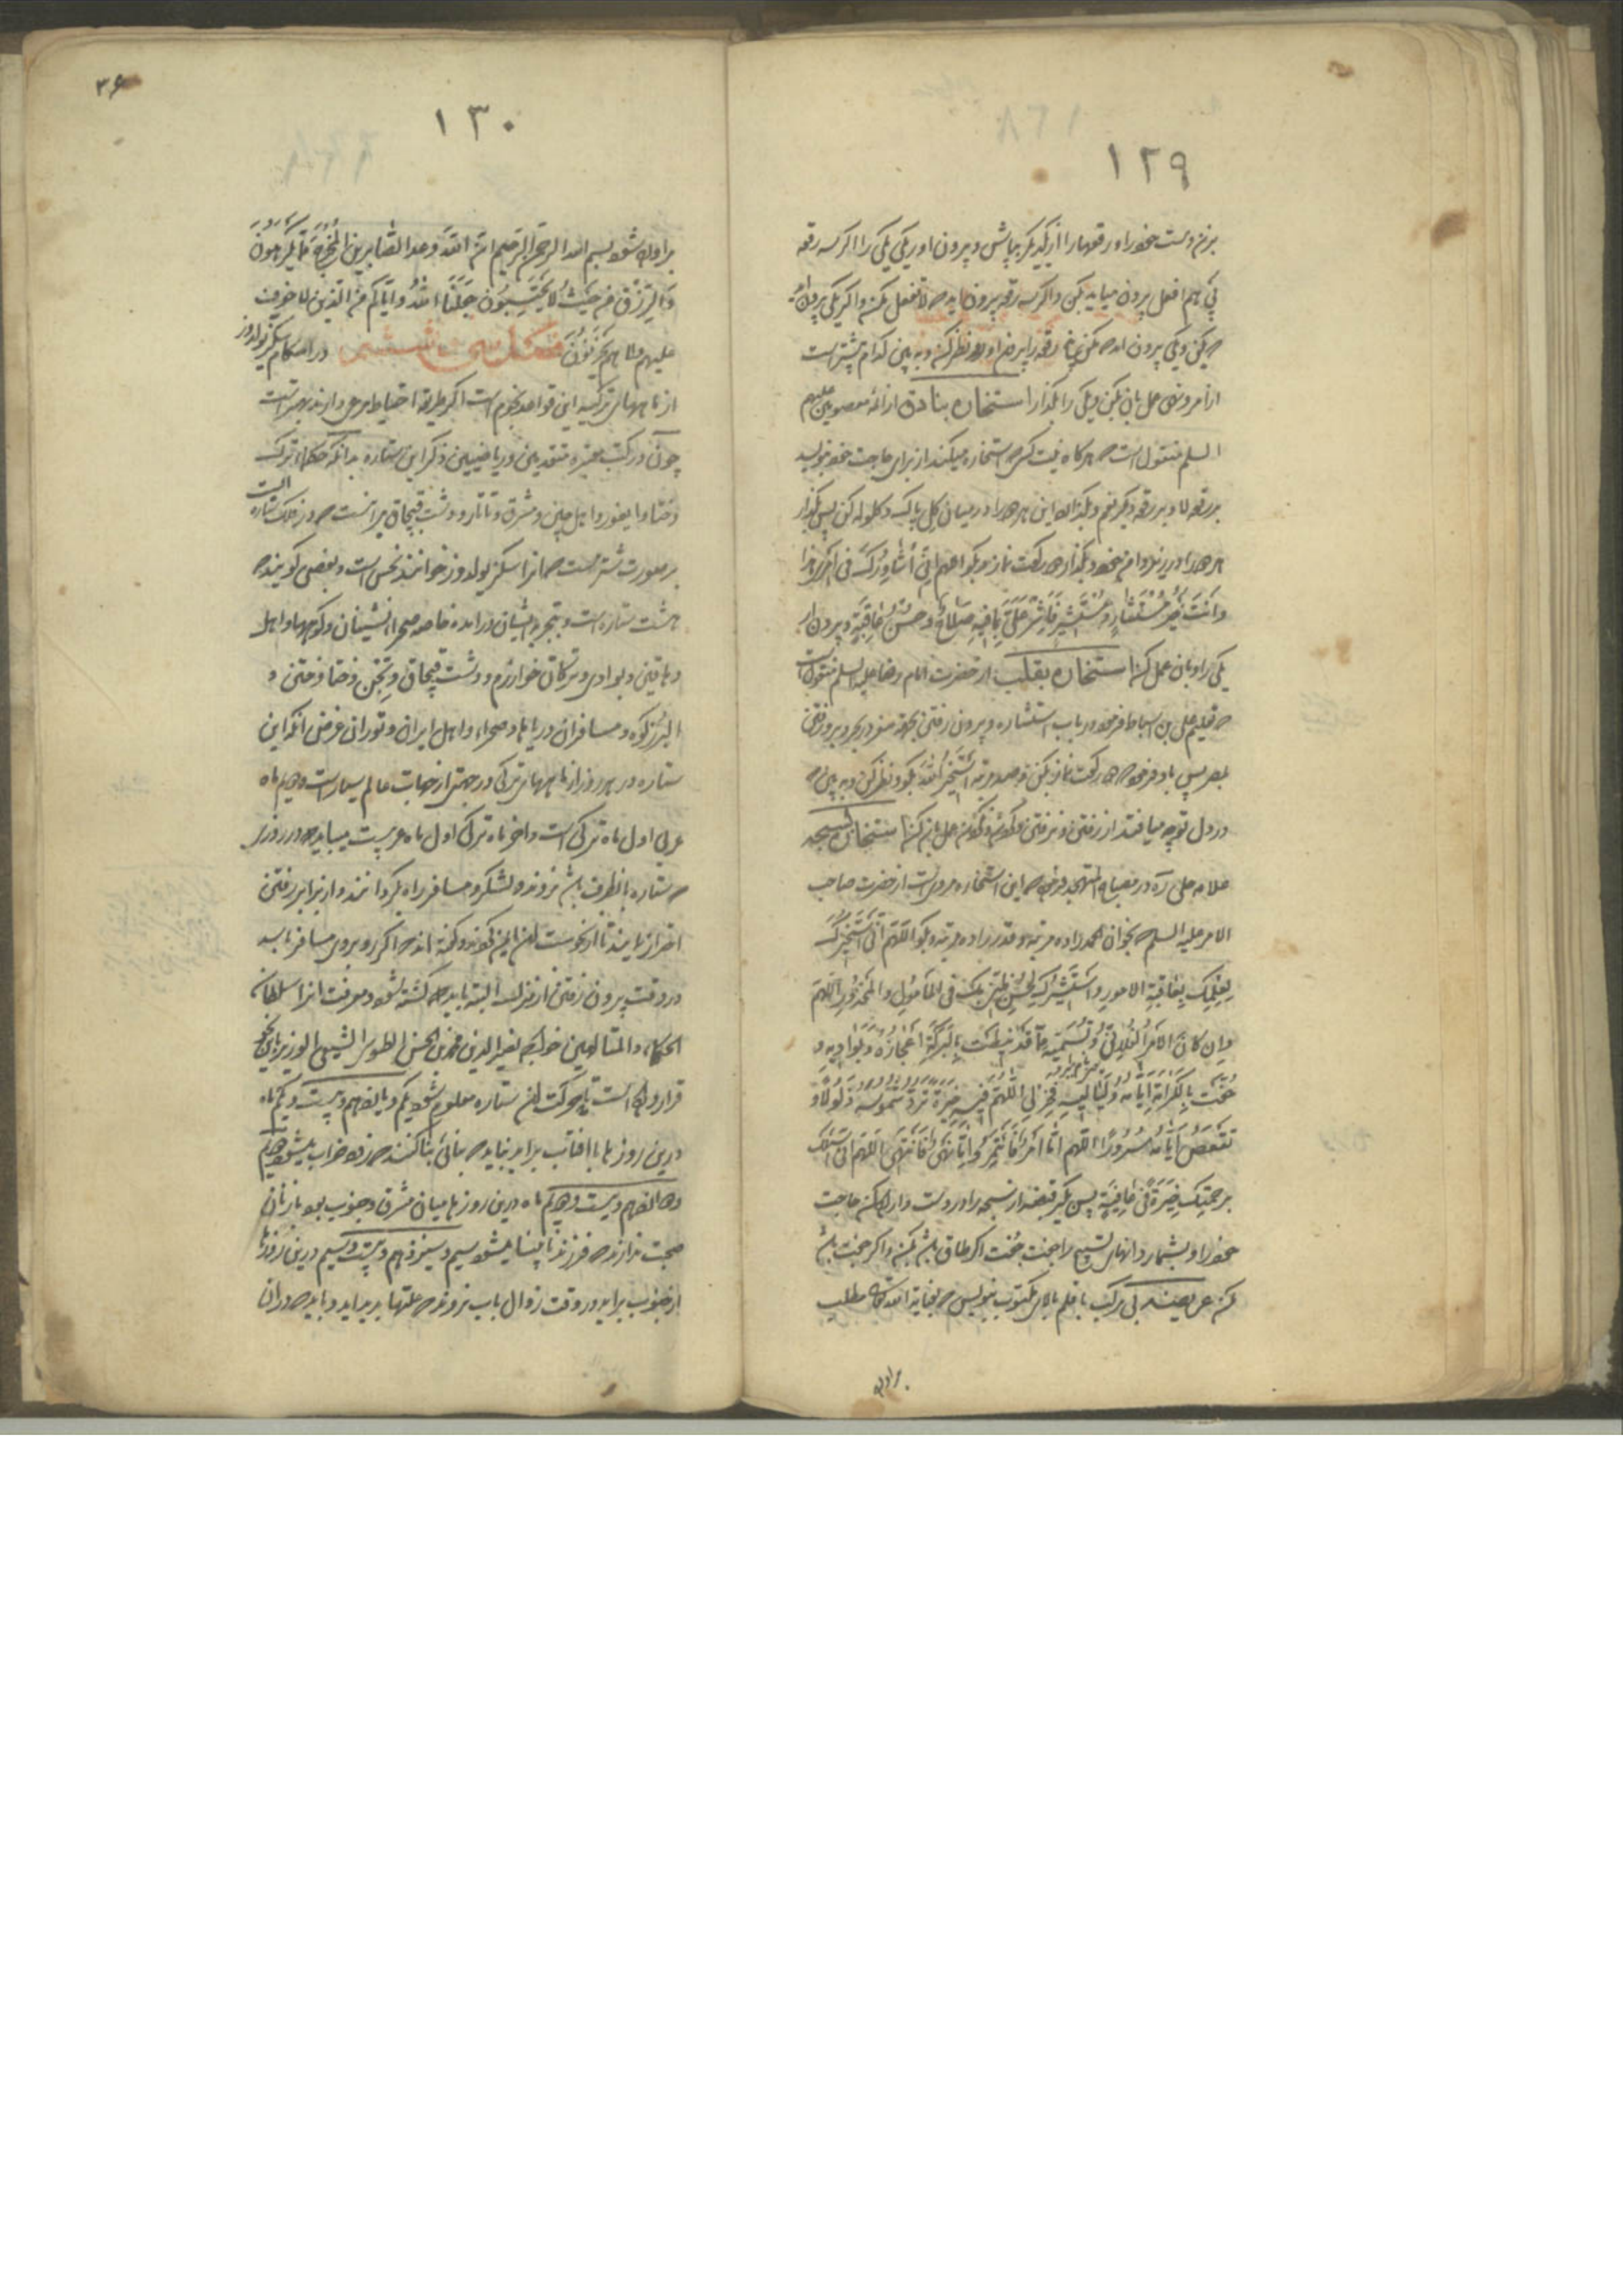 ١٢٩
بزن دست خود را و رقعها را از یکدیگر بپاش و بیرون آور یکی یکی را اگر سه رقعه
پی هم افعل بیرون میاید بکن و اگر سه رقعه بیرون آید که لا تفعل مکن و اگر یکی بیرون آید
که بکن و یکی بیرون آید که مکن پنج رقعه را بیرون آور و نظر کن و به بین کدام بیشتر است
استخاره بنادق از ائمه معصومین علیهم
السلم منقول است که هرگاه نیت کسی که استخاره میکند از برای حاجت خود بنویسد
بر رقعه لا و بر رقعه دیگر نعم و بگذارد این هر دو را در میان گل پاک و گلوله کن پس بگذار
هر دو را در زیر دامن خود و بگذار دو رکعت نماز و بگو اللهم انی اشاورک فی امری هذا
وانت خیر مستشار و مستشیر فاشر علی بما فیه صلاح و حسن عاقبة و بیرون آر
یکی را و بآن عمل کن استخاره بقلب از حضرت امام رضا علیه السلم منقول است
که دو رکعت نماز بکن و صد مرتبه استخیر الله بگو و نظر کن و به بین که
در دل تو چه میافتد از رفتن و نرفتن استخاره تسبیح
علامه حلی ره در مصباح المتهجد این استخاره مرویست از حضرت صاحب
الامر علیه السلم که بخوان الحمد را ده مرتبه و قدر را ده مرتبه و بگو اللهم انی استخیرک
لعلمک بعاقبة الامور و استشیرک لحسن ظنی بک فی المأمول والمحذور اللهم
وان کان الامر الفلانی و تسمیه مما قد نیطت بالبرکة اعجازه و بوادیه و
حفت بالکرامة ایامه و لیالیه فخر لی اللهم فیه خیرة ترد شموسه ذلولا و
تقعض ایامه سرورا اللهم اما امر فأتمر و اما نهی فانتهی اللهم انی استخیرک
برحمتک خیرة فی عافیة پس بگیر قبضه از تسبیح را در دست و در دل کن حاجت
خود را و بشمار دانهای تسبیح را جفت جفت اگر طاق باشد بکن و اگر جفت باشد
مکن عریضه بی مرکب با قلم بالای مکتوب بنویس مطلب
براورد
٣۶
١٣٠
براورده شود بسم الله الرحمن الرحیم ان الله وعد الصابرین المخرج مما یکرهون
والرزق من حیث لا یحتسبون جعلنا الله وایاکم من الذین لا خوف
علیهم ولا هم یحزنون فصل سی و ششم در احکام سکز یولدوز
از ماههای ترکیه این قواعد نجوم است اگر طریقه احتیاط مرعی دارند بهتر است
چون در کتب معتبره متقدمین و ریاضیین ذکر این ستاره بدانکه حکماء ترک
و ختا و ایغور و اهل چین و مشرق و تاتار و دشت قپچاق برآنست که در فلک ستاره است
بر صورت شتر است که آنرا سکز یولدوز خوانند نحس است و بعضی گویند که
هشت ستاره است و بتجربه ایشان درآمده خاصه صحرانشینان و کوهها و اهل
دهاقین و بوادی و ترکان خوارزم و دشت قپچاق و ختا و ختن و
البرز کوه و مسافران دریاها و صحراء و اهل ایران و توران غرض آنکه این
ستاره در هر روز از ماههای ترکی در جهتی از جهات عالم سیار است و دویم ماه
عربی اول ماه ترکی است و آخر ماه ترکی اول ماه عربیست میباید که در روزی
که ستاره بآنطرف باشد نروند و لشکر و مسافر راه بگردانند و از برابر رفتن
احتراز نمایند تا از نحوست آن ایمن گردند و گفته‌اند که اگر روبروی مسافر باشد
در وقت بیرون رفتن از منزل البته باید که کشته شود و معرفت آنرا سلطان
الحکماء و المتألهین خواجه نصیر الدین محمد بن الحسن الطوسی الشیعی الوزیر باین نحو
قرار داده است تا حرکت آن ستاره معلوم شود یکم و یازدهم و بیست و یکم ماه
درین روزها با آفتاب برابر نماید که بنائی بنا کنند که زود خراب میشود دویم
و دوازدهم و بیست و دویم ماه درین روزها میان مشرق و جنوب بود با زنان
صحبت ندارند که فرزند نابینا میشود سیم و سیزدهم و بیست و سیم درین روزها
از جنوب برآید در وقت زوال بآب نروند که علتها پدید آید و باید که در آن